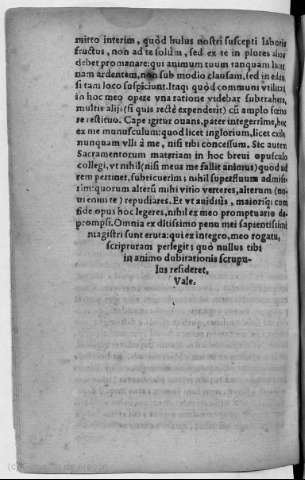 mitto interim, quòd huius nostri suscepti laboris
fructus, non ad te solùm, sed ex te in plures alios
debet promanare: qui animum tuum tanquam lucer
nam ardentem, non sub modio clausam, sed in editis
si tam loco suspiciunt. Itaq; quòd communi vtilitati
in hoc meo opere vna ratione videbar subtrahere,
multis alijs (si quis rectè expenderit) cũ amplo fœno
re restituo. Cape igitur ouans, pater integerrime, hoc
ex me munusculum: quod licet inglorium, licet exile
nunquam vlli à me, nisi tibi concessum. Sic autem
Sacramentorum materiam in hoc breui opusculo
collegi, vt nihil (nisi meus me fallit animus) quod ad
rem pertinet, subticuerim: nihil superfluum admise-
rim: quorum alterũ mihi vitio verteres, alterum (no-
ui enim te) repudiares. Et vt auidiùs, maioriq; con
fide opus hoc legeres, nihil ex meo promptuario de-
prompsi. Omnia ex ditissimo penu mei sapientissimi
magistri sunt eruta: qui ex integro, meo rogatu,
scripturam perlegit: quò nullus tibi
in animo dubitationis scrupu-
lus resideret,
Vale.